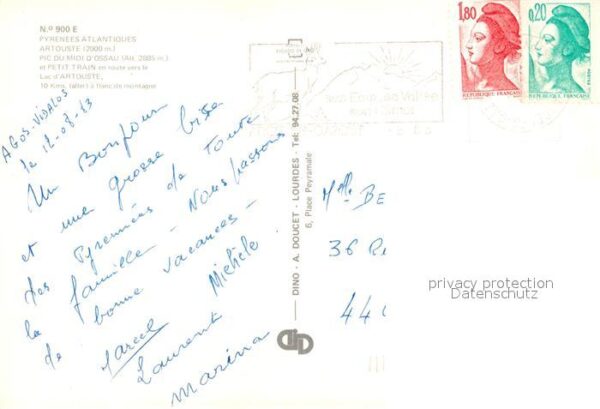 N.º 900 E
PYRENEES ATLANTIQUES
ARTOUSTE (2000 m.)
PIC DU MIDI D'OSSAU (Alt. 2885 m.)
et PETIT TRAIN en route vers le
Lac d'ARTOUSTE,
10 Kms. (aller) à flanc de montagne
AGOS-VIDALOS
le 12-08-83
Un Bonjour
et une grosse bise
des Pyrénées de toute
la famille - Nous passons
de bonne vacances -
Marcel Michèle
Laurent
Marina
DINO - A. DOUCET - LOURDES - Tel: 94.27.08
6, Place Peyramale
1,80
REPUBLIQUE FRANÇAISE
0,20
REPUBLIQUE FRANÇAISE
Mlle BE
36 R
44
privacy protection
Datenschutz